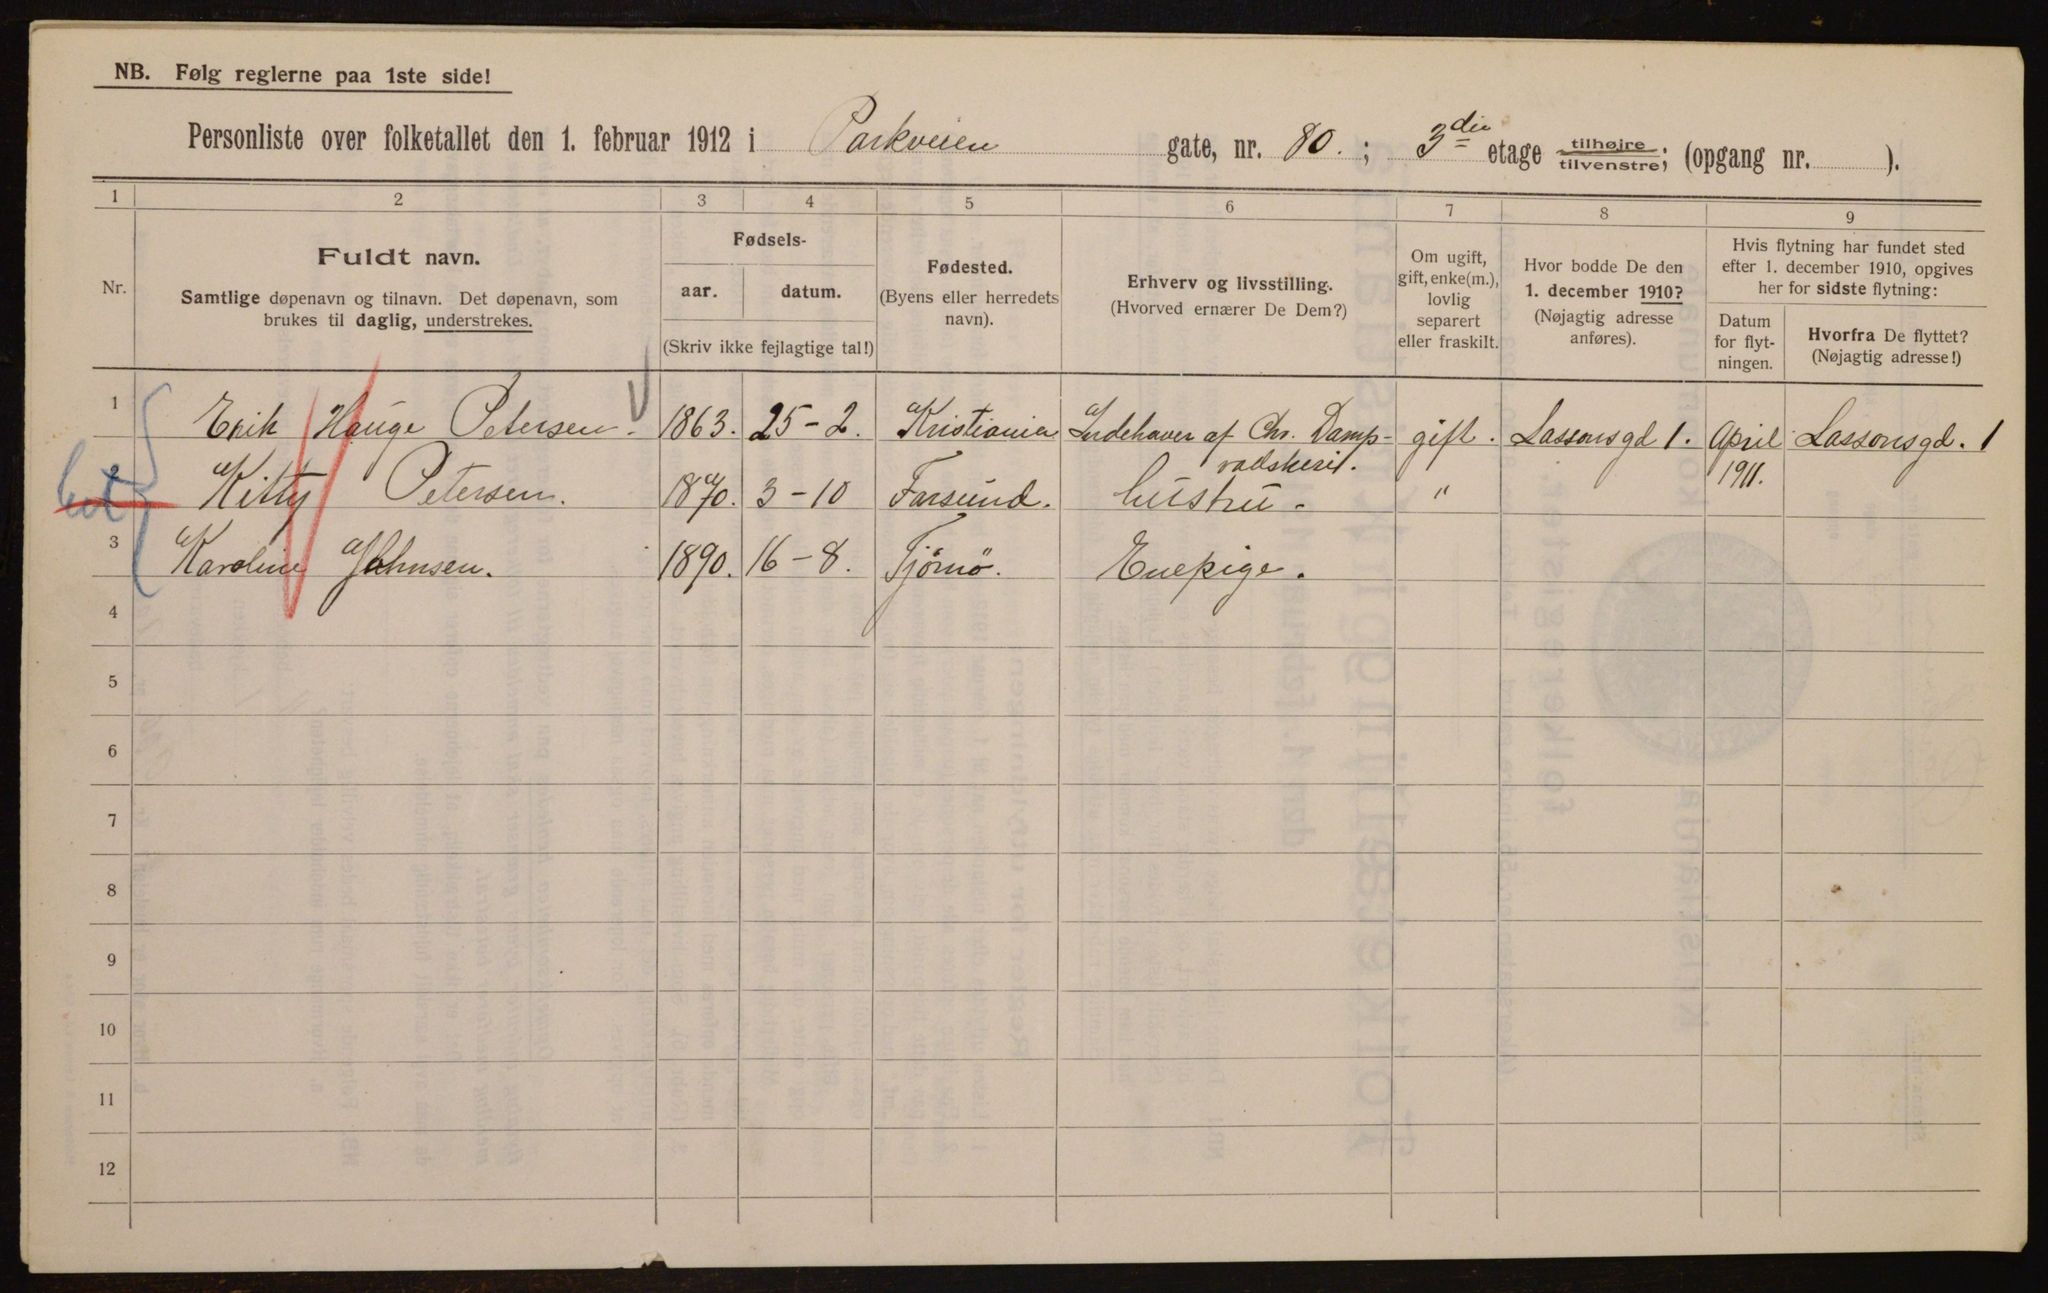 NB. Følg reglerne paa 1ste side!
Personliste over folketallet den 1. februar 1912 i Parkveien gate, nr. 80. ; 3die etage tilhøjre, tilvenstre, (opgang nr. ).
1 2 3 4 5 6 7 8 9
Nr.
Fuldt navn.
Samtlige døpenavn og tilnavn. Det døpenavn, som
brukes til daglig, understrekes.
Fødsels-
aar. datum.
(Skriv ikke fejlagtige tal!)
Fødested.
(Byens eller herredets
navn).
Erhverv og livsstilling.
(Hvorved ernærer De Dem?)
Om ugift,
gift, enke(m.),
lovlig
separert
eller fraskilt.
Hvor bodde De den
1. december 1910?
(Nøjagtig adresse
anføres).
Hvis flytning har fundet sted
efter 1. december 1910, opgives
her for sidste flytning:
Datum
for flyt-
ningen.
Hvorfra De flyttet?
(Nøjagtig adresse!)
1 Erik Hauge Petersen. 1863. 25-2. Kristiania Indehaver af Chr. Damp- gift. Lassonsgd 1. April Lassonsgd. 1
1911.
2 Kitty Petersen. 1870. 3-10 Farsund. hustru. "
3 Karoline Johnsen. 1890. 16-8. Tjömö. Enepige.
4
5
6
7
8
9
10
11
12